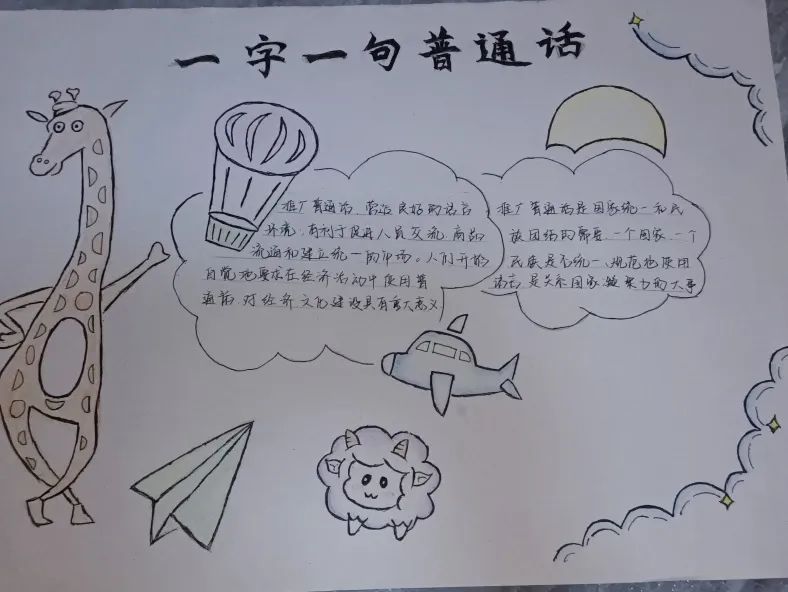 一字一句普通话
推广普通话、营造良好的语言
环境,有利于促进人员交流,商品
流通和建立统一的市场。人们开始
自觉地要求在经济活动中使用普
通话,对经济文化建设具有重大意义
推广普通话是国家统一和民
族团结的需要,一个国家、一个
民族是否统一、规范地使用
语言,是关系国家凝聚力的大事